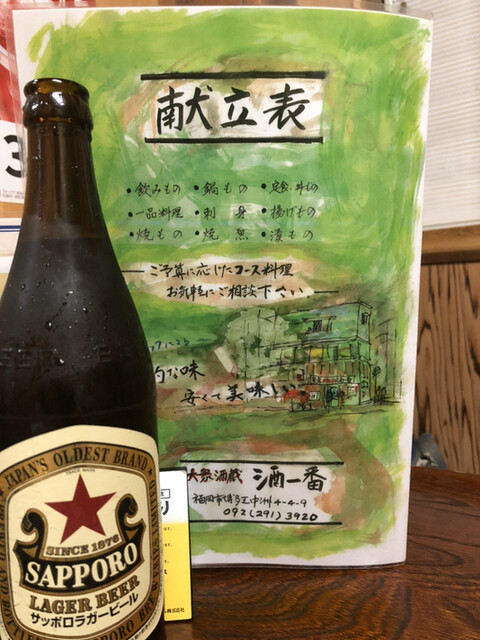 献立表
・飲みもの ・鍋もの ・定食、丼もの
・一品料理 ・刺身 ・揚げもの
・焼もの ・焼魚 ・漬もの
ご予算に応じたコース料理
お気軽にご相談下さい
的な味
安くて美味しい
大衆酒蔵 酒一番
福岡市博多区中洲4-4-9
092(291)3920
JAPAN'S OLDEST BRAND
TRADE MARK
SINCE 1876
SAPPORO
LAGER BEER
サッポロラガービール